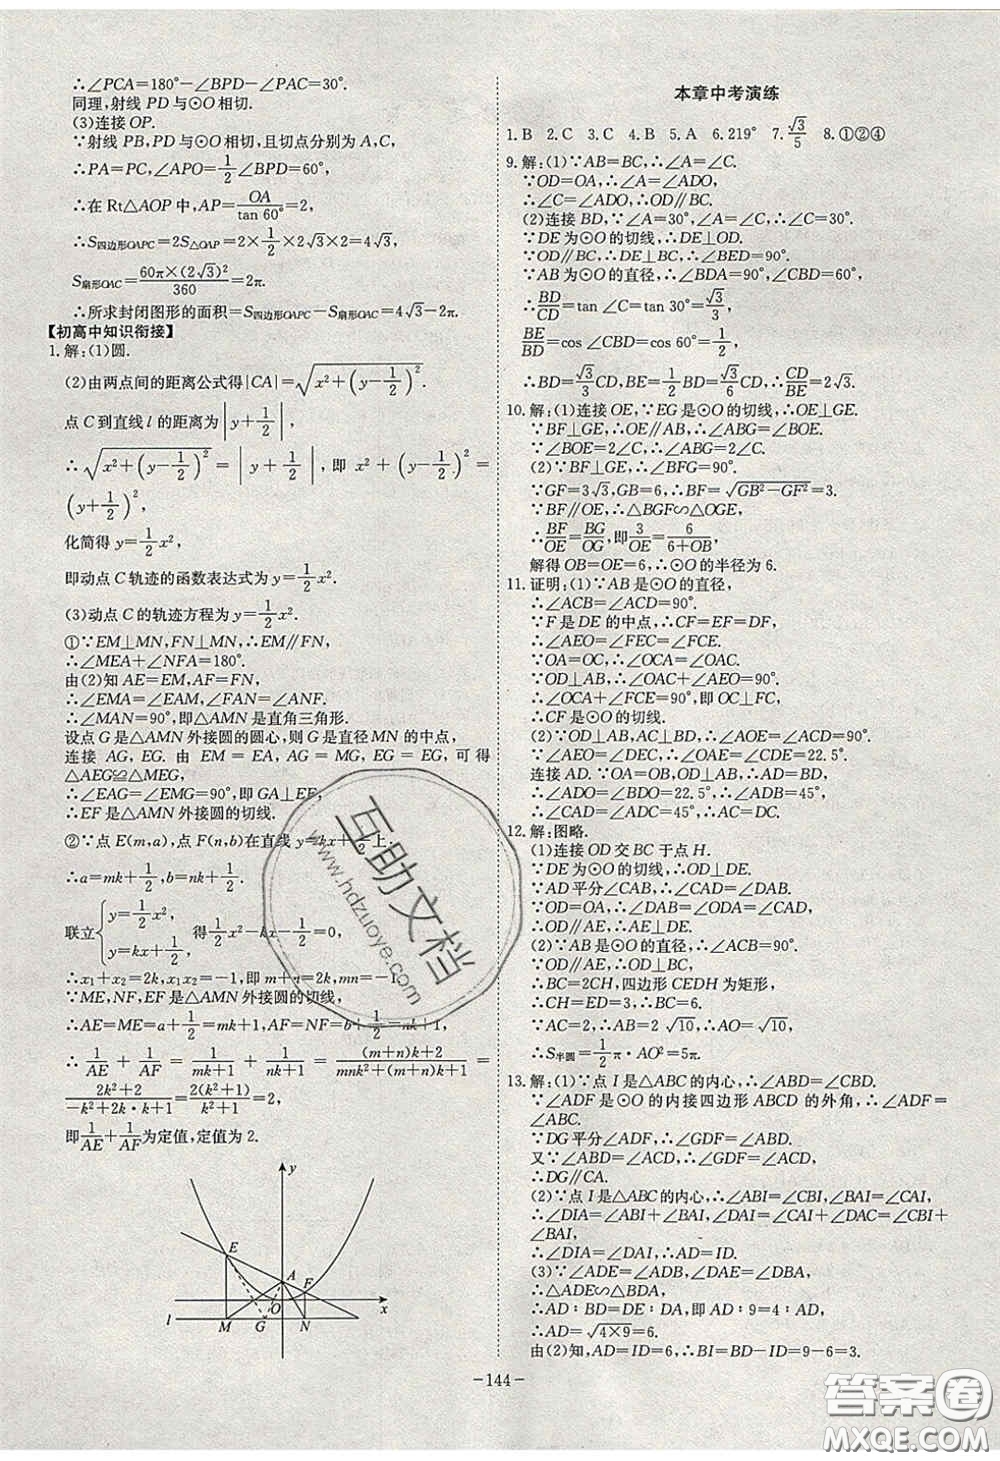 ∴∠PCA=180°-∠BPD-∠PAC=30°.
同理,射线 PD 与⊙O 相切.
(3)连接 OP.
∵射线 PB,PD 与⊙O 相切,且切点分别为 A,C,
∴PA=PC,∠APO=1/2∠BPD=60°,
∴在 Rt△AOP 中,AP=OA/tan 60°=2,
∴S四边形OAPC=2S△OAP=2×1/2×2√3×2=4√3,
S扇形OAC=60π×(2√3)²/360=2π.
∴所求封闭图形的面积=S四边形OAPC-S扇形OAC=4√3-2π.
【初高中知识衔接】
1.解:(1)圆.
(2)由两点间的距离公式得|CA|=√(x²+(y-1/2)²).
点 C 到直线 l 的距离为|y+1/2|,
∴√(x²+(y-1/2)²)=|y+1/2|,即 x²+(y-1/2)²=
(y+1/2)²,
化简得 y=1/2x²,
即动点 C 轨迹的函数表达式为 y=1/2x².
(3)动点 C 的轨迹方程为 y=1/2x².
①∵EM⊥MN,FN⊥MN,∴EM∥FN,
∴∠MEA+∠NFA=180°.
由(2)知 AE=EM,AF=FN,
∴∠EMA=∠EAM,∠FAN=∠ANF.
∴∠MAN=90°,即△AMN 是直角三角形.
设点 G 是△AMN 外接圆的圆心,则 G 是直径 MN 的中点,
连接 AG, EG. 由 EM=EA, AG=MG, EG=EG, 可得
△AEG≌△MEG,
∴∠EAG=∠EMG=90°,即 GA⊥EF,
∴EF 是△AMN 外接圆的切线.
②∵点 E(m,a),点 F(n,b)在直线 y=kx+1/2上,
∴a=mk+1/2,b=nk+1/2,
联立{y=1/2x², y=kx+1/2, 得1/2x²-kx-1/2=0,
∴x₁+x₂=2k,x₁x₂=-1,即 m+n=2k,mn=-1.
∵ME,NF,EF 是△AMN 外接圆的切线,
∴AE=ME=a+1/2=mk+1,AF=NF=b+1/2=nk+1,
∴1/AE+1/AF=1/(mk+1)+1/(nk+1)=((m+n)k+2)/(mnk²+(m+n)k+1)=
(2k²+2)/(-k²+2k·k+1)=2(k²+1)/(k²+1)=2,
即1/AE+1/AF为定值,定值为 2.
y
E
A
F
O
x
l
M
G
N
本章中考演练
1.B 2.C 3.C 4.B 5.A 6.219° 7.√3/5 8.①②④
9.解:(1)∵AB=BC,∴∠A=∠C.
∵OD=OA,∴∠A=∠ADO,
∴∠C=∠ADO,∴OD∥BC.
(2)连接 BD,∵∠A=30°,∠A=∠C,∴∠C=30°.
∵DE 为⊙O 的切线,∴DE⊥OD.
∵OD∥BC,∴DE⊥BC,∴∠BED=90°.
∵AB 为⊙O 的直径,∴∠BDA=90°,∠CBD=60°,
∴BD/CD=tan ∠C=tan 30°=√3/3,
BE/BD=cos ∠CBD=cos 60°=1/2,
∴BD=√3/3CD,BE=1/2BD=√3/6CD,∴CD/BE=2√3.
10.解:(1)连接 OE,∵EG 是⊙O 的切线,∴OE⊥GE.
∵BF⊥GE,∴OE∥AB,∴∠ABG=∠BOE.
∵∠BOE=2∠C,∴∠ABG=2∠C.
(2)∵BF⊥GE,∴∠BFG=90°.
∵GF=3√3,GB=6,∴BF=√(GB²-GF²)=3.
∵BF∥OE,∴△BGF∽△OGE,
∴BF/OE=BG/OG,即3/OE=6/(6+OB),
解得 OB=OE=6,∴⊙O 的半径为 6.
11.证明:(1)∵AB 是⊙O 的直径,
∴∠ACB=∠ACD=90°.
∵F 是 DE 的中点,∴CF=EF=DF,
∴∠AEO=∠FEC=∠FCE.
∵OA=OC,∴∠OCA=∠OAC.
∵OD⊥AB,∴∠OAC+∠AEO=90°,
∴∠OCA+∠FCE=90°,即 OC⊥FC,
∴CF 是⊙O 的切线.
(2)∵OD⊥AB,AC⊥BD,∴∠AOE=∠ACD=90°.
∵∠AEO=∠DEC,∴∠OAE=∠CDE=22.5°.
连接 AD. ∵OA=OB,OD⊥AB,∴AD=BD,
∴∠ADO=∠BDO=22.5°,∴∠ADB=45°,
∴∠CAD=∠ADC=45°,∴AC=DC.
12.解:图略.
(1)连接 OD 交 BC 于点 H.
∵DE 为⊙O 的切线,∴OD⊥DE.
∵AD 平分∠CAB,∴∠CAD=∠DAB.
∵OD=OA,∴∠DAB=∠ODA=∠CAD,
∴OD∥AE,∴AE⊥DE.
(2)∵AB 是⊙O 的直径,∴∠ACB=90°.
∵OD∥AE,OD⊥DE,
∴BC=2CH,四边形 CEDH 为矩形,
∴CH=ED=3,∴BC=6.
∵AC=2,∴AB=2√10,∴AO=√10,
∴S半圆=1/2π·AO²=5π.
13.解:(1)∵点 I 是△ABC 的内心,∴∠ABD=∠CBD.
∵∠ADF 是⊙O 的内接四边形 ABCD 的外角,∴∠ADF=
∠ABC.
∵DG 平分∠ADF,∴∠GDF=∠ABD.
又∵∠ABD=∠ACD,∴∠GDF=∠ACD,
∴DG∥CA.
(2)∵点 I 是△ABC 的内心,∴∠ABI=∠CBI,∠BAI=∠CAI,
∴∠DIA=∠ABI+∠BAI,∠DAI=∠CAI+∠DAC=∠CBI+
∠BAI,
∴∠DIA=∠DAI,∴AD=ID.
(3)∵∠ADE=∠ADB,∠DAE=∠DBA,
∴△ADE∽△BDA,
∴AD∶BD=DE∶DA,即 AD∶9=4∶AD,
∴AD=√(4×9)=6.
由(2)知,AD=ID=6,∴BI=BD-ID=9-6=3.
-144-
互助文档
www.hdzuoye.com
答案圈
MXQE.COM